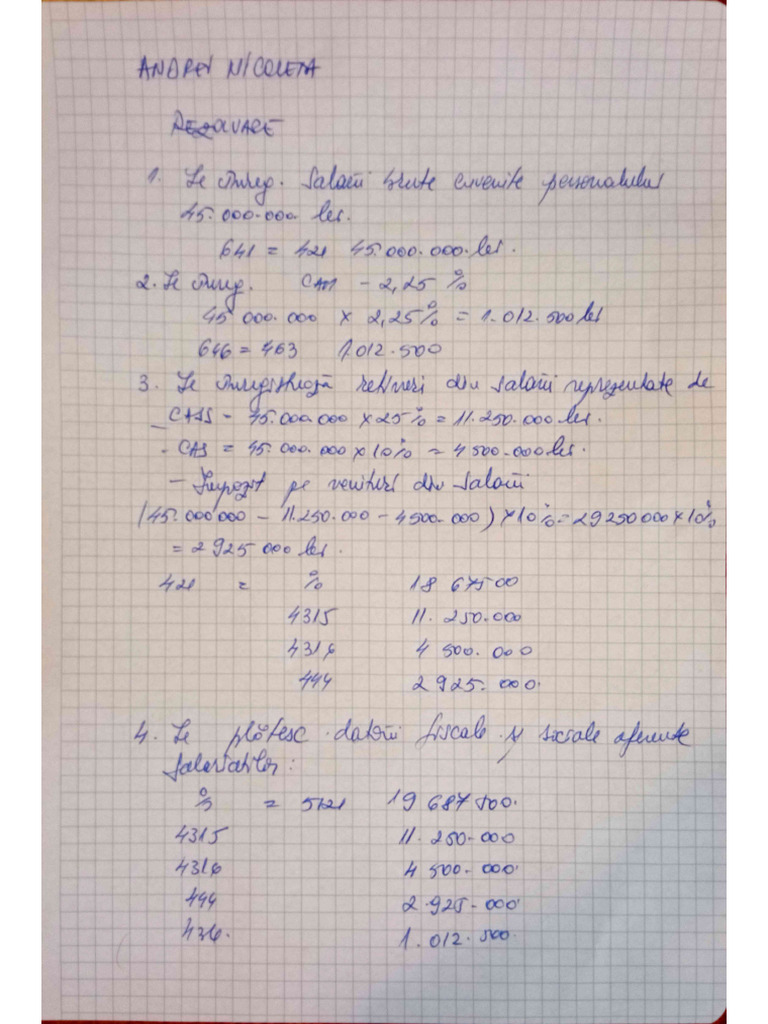 ANDREI NICOLETA
REZOLVARE
1. Se înreg. salarii brute cuvenite personalului
45.000.000 lei.
641 = 421 45.000.000 lei.
2. Se înreg. CAM - 2,25 %
45 000.000 x 2,25% = 1.012.500 lei
646 = 463 1012.500
3. Se înregistrează rețineri din salarii reprezentate de
- CASS - 45.000.000 x 25% = 11.250.000 lei.
- CAS = 45.000.000 x 10% = 4 500.000 lei.
- Impozit pe venituri din salarii
(45.000000 - 11.250.000 - 4500.000) x 10% = 29250000 x 10%
= 2925000 lei.
421 = % 18 67500
4315 11.250.000
4316 4 500.000
444 2925.000.
4. Se plătesc datorii fiscale și sociale aferente
salariaților:
% = 5121 19 687 500.
4315 11.250.000
4316 4 500.000
444 2.925.000
436. 1.012.500.